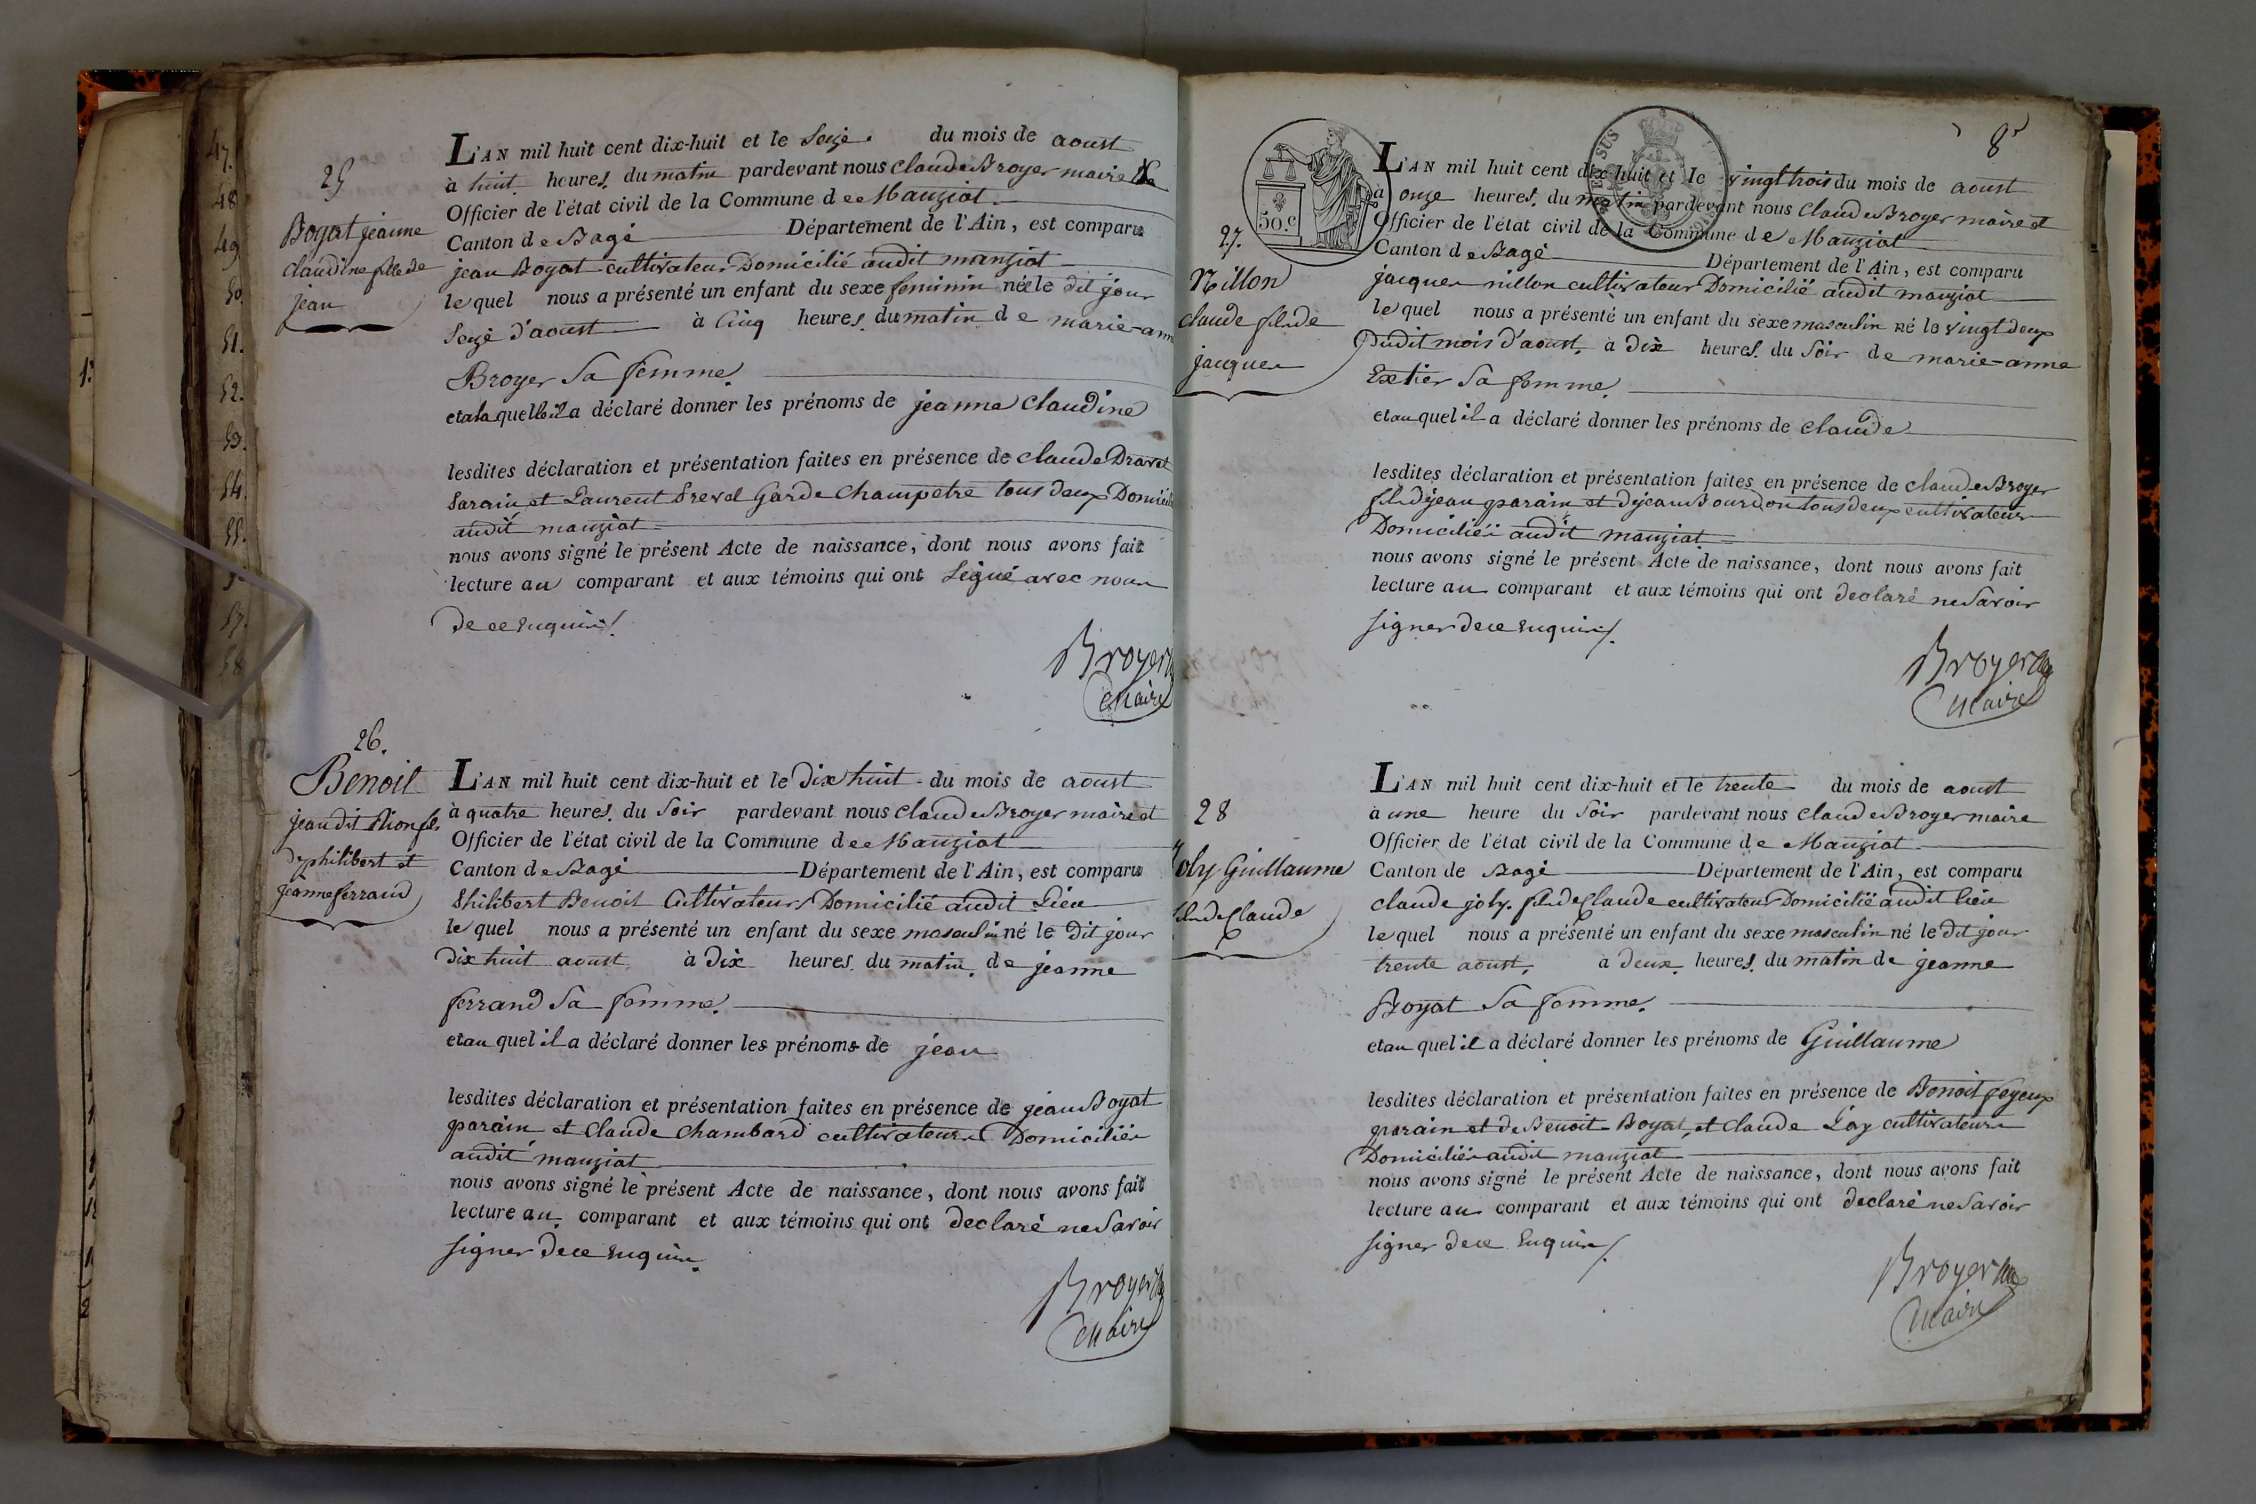 47.
48
49
50
51.
52.
53.
54.
55.
57.
58
25
Boyat jeanne
claudine fille de
jean
L'AN mil huit cent dix-huit et le Seize du mois de aoust
à huit heures du matin pardevant nous Claude Broyer maire
Officier de l'état civil de la Commune de Manziat
Canton de Bagé Département de l'Ain, est comparu
jean Boyat cultivateur Domicilié audit manziat
lequel nous a présenté un enfant du sexe feminin née le dit jour
Seize d'aoust à Cinq heures du matin de marie-anne
Broyer Sa femme.
et a la quelle il a déclaré donner les prénoms de jeanne claudine
lesdites déclaration et présentation faites en présence de claude Dravet
Parain et Laurent Prevel Garde Champetre tous deux
audit manziat
nous avons signé le présent Acte de naissance, dont nous avons fait
lecture au comparant et aux témoins qui ont Signé avec nous
de ce Enquis.
Broyer
Maire
26.
Benoit
jean dit Pion fils
de philibert et
jeanne ferrand
L'AN mil huit cent dix-huit et le Dix huit du mois de aoust
à quatre heures du Soir pardevant nous Claude Broyer maire et
Officier de l'état civil de la Commune de Manziat
Canton de Bagé Département de l'Ain, est comparu
Philibert Benoit Cultivateur Domicilié audit Lieu
lequel nous a présenté un enfant du sexe masculin né le dit jour
Dix huit aoust à Dix heures du matin de jeanne
ferrand Sa femme.
et au quel il a déclaré donner les prénoms de jean
lesdites déclaration et présentation faites en présence de jean Boyat
parain et Claude Chambard cultivateurs Domiciliés
audit manziat
nous avons signé le présent Acte de naissance, dont nous avons fait
lecture au comparant et aux témoins qui ont declaré ne Savoir
signer de ce Enquis.
Broyer
Maire
8
50. c
27.
Nillon
claude fils de
jacques
L'AN mil huit cent dix-huit et le vingt trois du mois de aoust
à onze heures du matin pardevant nous Claude Broyer maire et
Officier de l'état civil de la Commune de Manziat
Canton de Bagé Département de l'Ain, est comparu
jacques nillon cultivateur Domicilié audit manziat
lequel nous a présenté un enfant du sexe masculin né le vingt deux
Dudit mois d'aoust, à Dix heures du Soir de marie-anne
Extier Sa femme.
et au quel il a déclaré donner les prénoms de claude
lesdites déclaration et présentation faites en présence de claude Broyer
fils de jean parain et de jean Bourdon tous deux cultivateurs
Domiciliés audit manziat
nous avons signé le présent Acte de naissance, dont nous avons fait
lecture au comparant et aux témoins qui ont declaré ne Savoir
signer de ce Enquis.
Broyer
Maire
28
Joly Guillaume
fils de Claude
L'AN mil huit cent dix-huit et le trente du mois de aoust
à une heure du Soir pardevant nous Claude Broyer maire
Officier de l'état civil de la Commune de Manziat
Canton de Bagé Département de l'Ain, est comparu
claude joly fils de Claude cultivateur Domicilié audit lieu
lequel nous a présenté un enfant du sexe masculin né le dit jour
trente aoust, à deux heures du matin de jeanne
Boyat Sa femme.
et au quel il a déclaré donner les prénoms de Guillaume
lesdites déclaration et présentation faites en présence de Benoit feyeux
parain et de Benoit Boyat, et claude Gay cultivateurs
Domiciliés audit manziat
nous avons signé le présent Acte de naissance, dont nous avons fait
lecture au comparant et aux témoins qui ont declaré ne Savoir
signer de ce Enquis.
Broyer
Maire